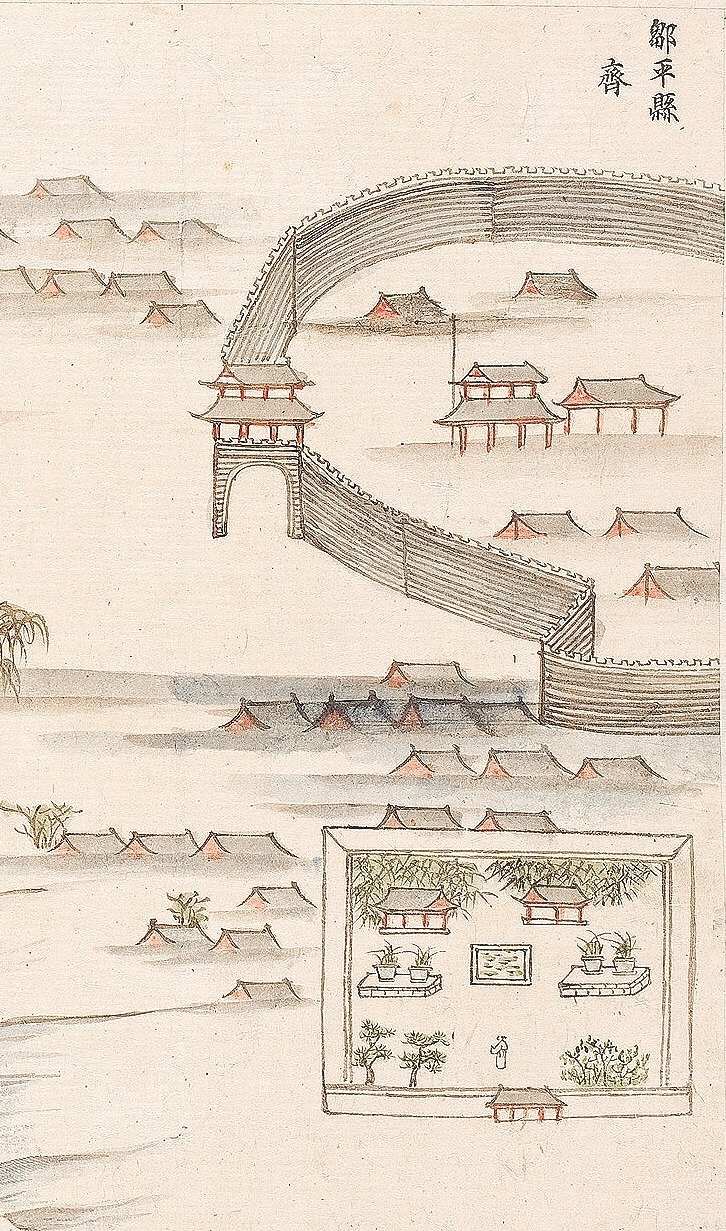 鄒平縣
齊